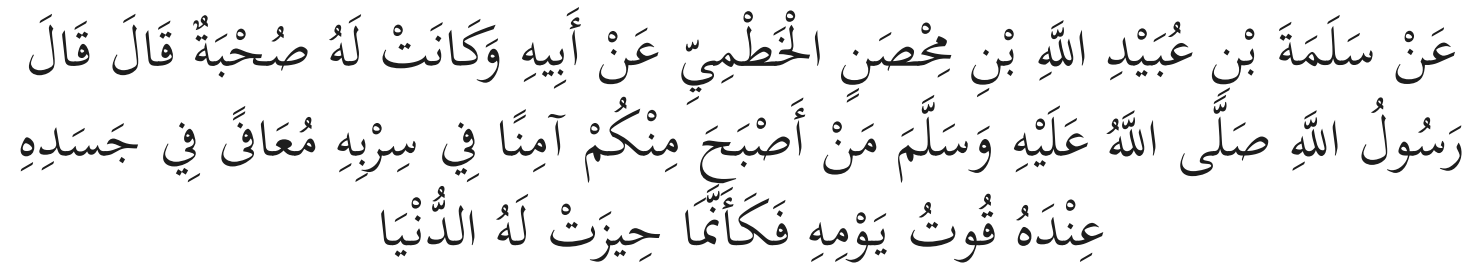 عَنْ سَلَمَةَ بْنِ عُبَيْدِ اللَّهِ بْنِ مِحْصَنٍ الْخَطْمِيِّ عَنْ أَبِيهِ وَكَانَتْ لَهُ صُحْبَةٌ قَالَ قَالَ
رَسُولُ اللَّهِ صَلَّى اللَّهُ عَلَيْهِ وَسَلَّمَ مَنْ أَصْبَحَ مِنْكُمْ آمِنًا فِي سِرْبِهِ مُعَافًى فِي جَسَدِهِ
عِنْدَهُ قُوتُ يَوْمِهِ فَكَأَنَّمَا حِيزَتْ لَهُ الدُّنْيَا